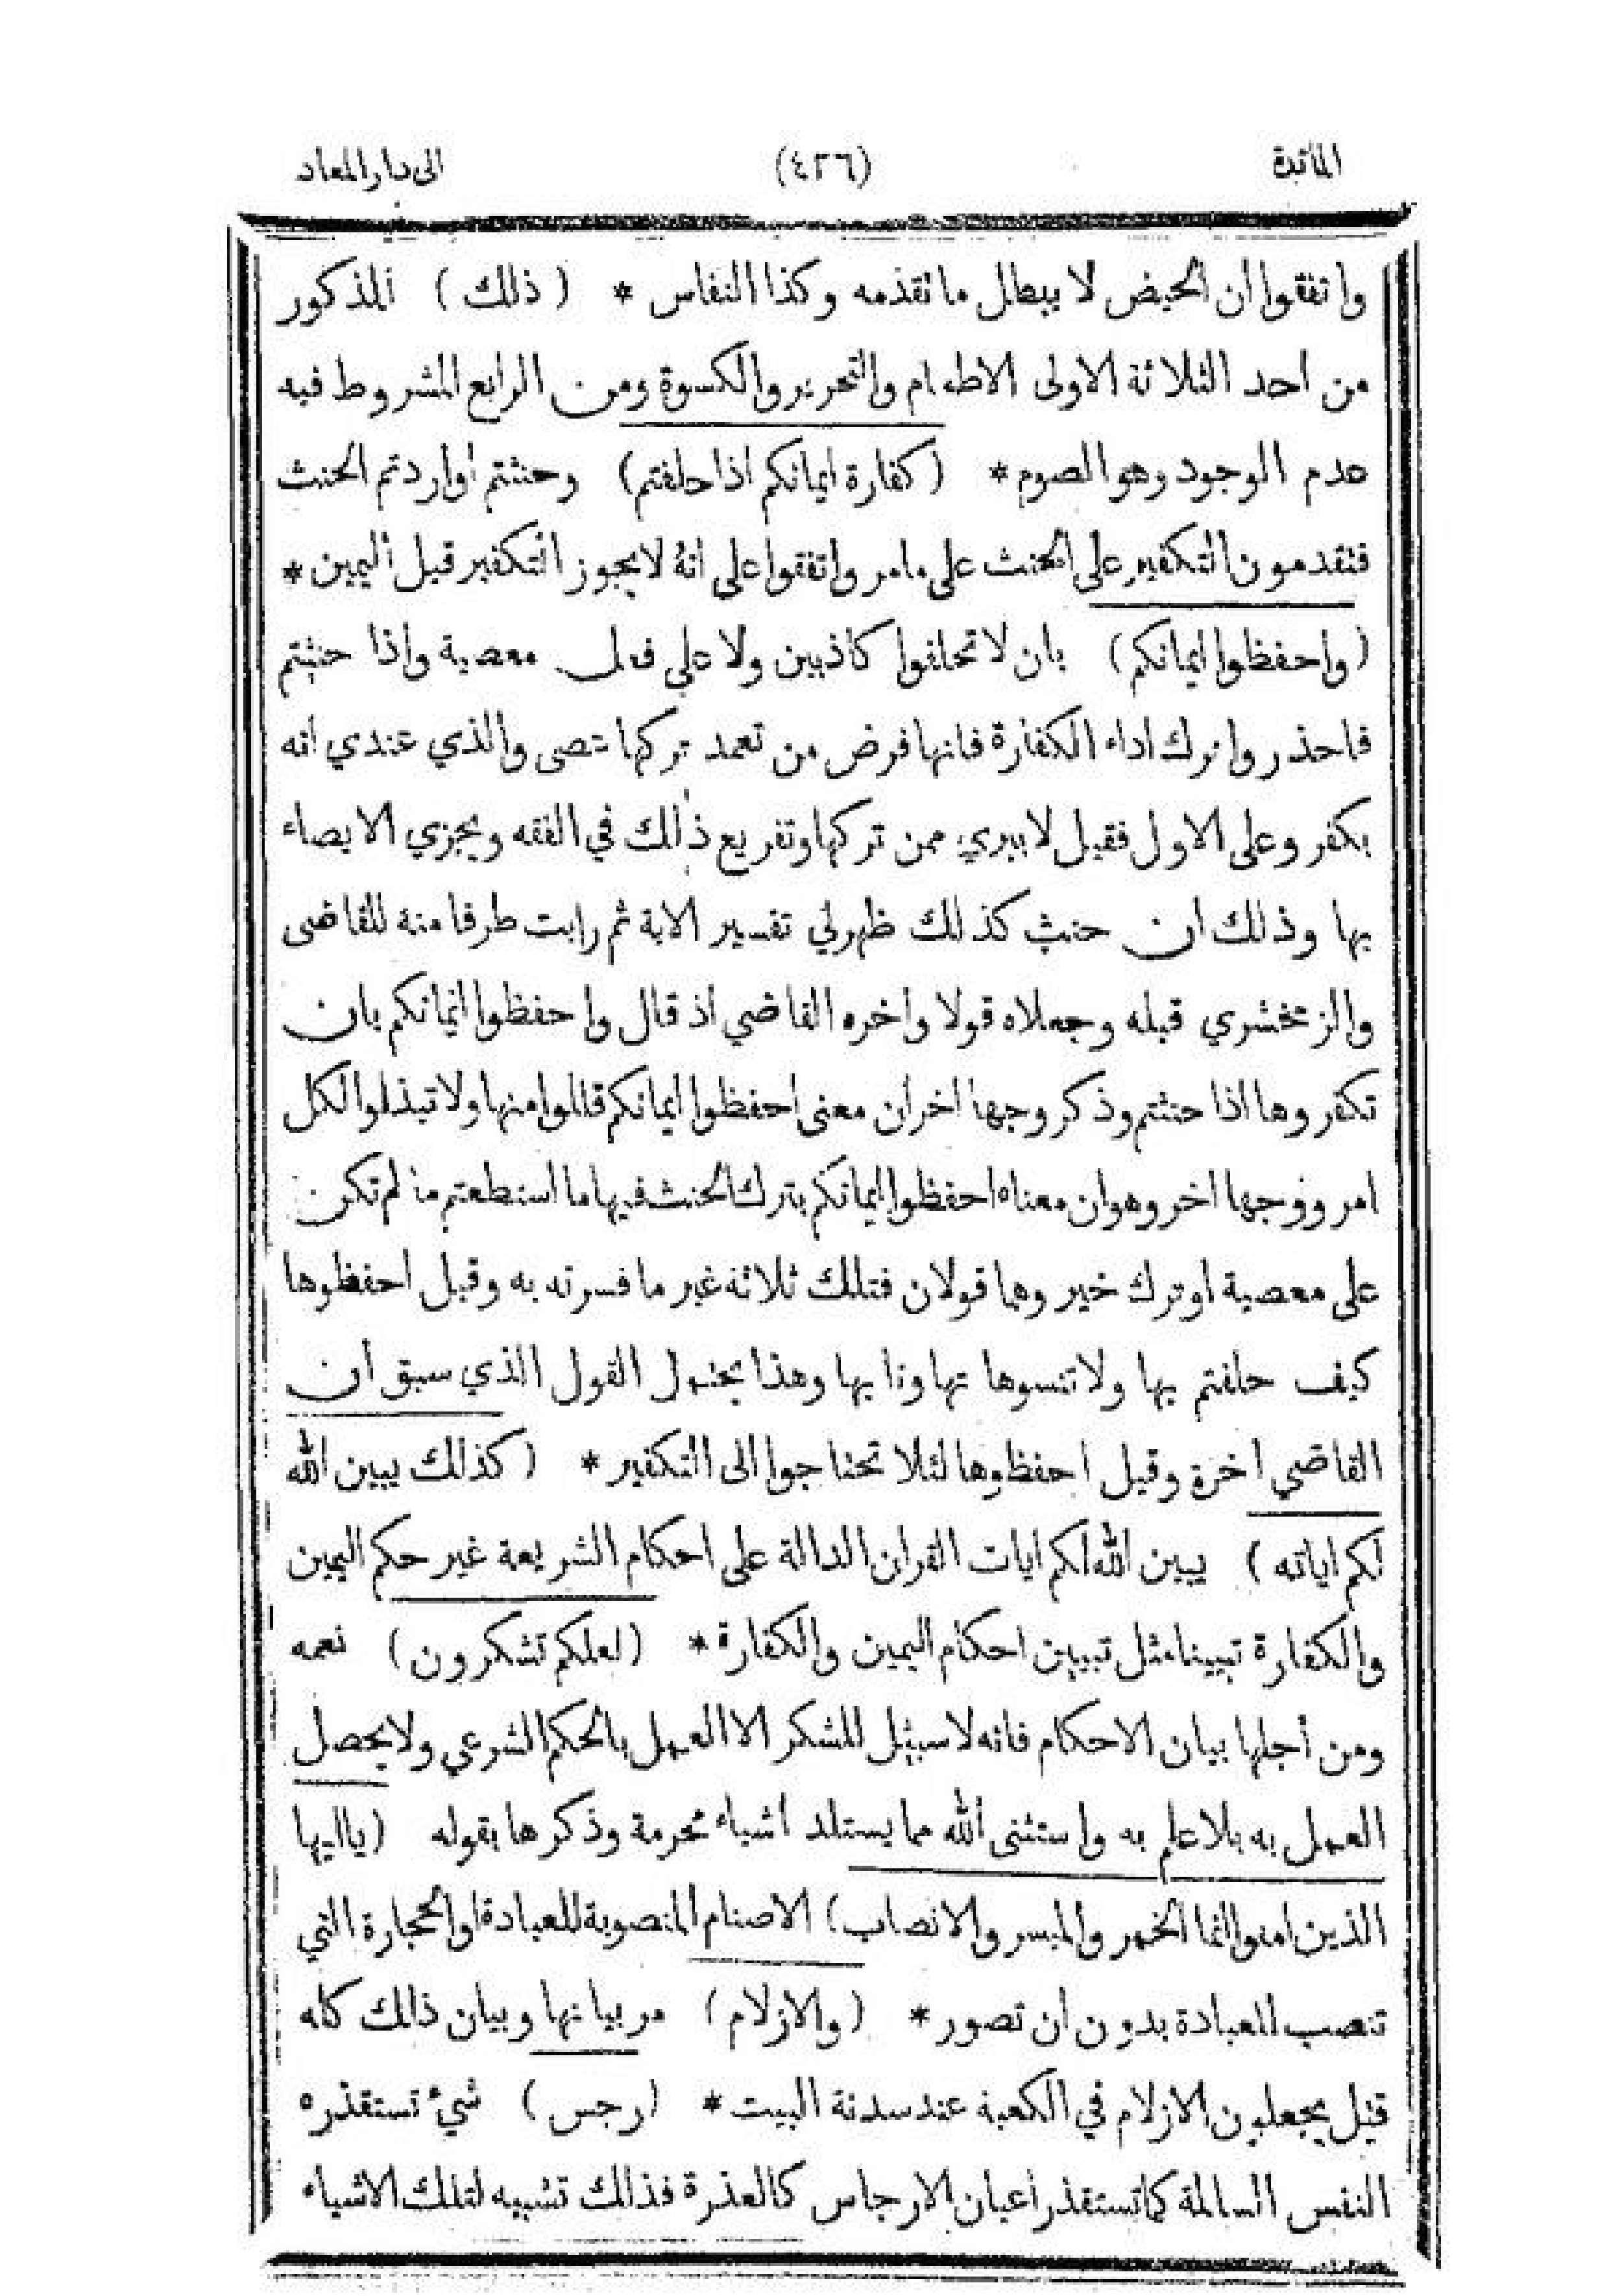 المائدة (٤٢٦) الى دار المعاد
واتفقوا ان الحيض لا يبطل ما تقدمه وكذا النفاس * ( ذلك ) المذكور
من احد الثلاثة الاولى الاطعام والتحرير والكسوة ومن الرابع المشروط فيه
عدم الوجود وهو الصوم * ( كفارة ايمانكم اذا حلفتم ) وحنثتم او اردتم الحنث
فتقدمون التكفير على الحنث على ما مر واتفقوا على انه لا يجوز التكفير قبل اليمين *
( واحفظوا ايمانكم ) بان لا تحلفوا كاذبين ولا على فعل معصية واذا حنثتم
فاحذروا ترك اداء الكفارة فانها فرض من تعمد تركها عصى والذي عندي انه
يكفر وعلى الاول فقيل لا يبرئ ممن تركها وتفريع ذلك في الفقه ويجزي الايصاء
بها وذلك ان حنث كذلك ظهر لي تفسير الاية ثم رايت طرفا منه للقاضي
والزمخشري قبله وجعلاه قولا واخره القاضي اذ قال واحفظوا ايمانكم بان
تكفروها اذا حنثتم وذكر وجها اخر ان معنى احفظوا ايمانكم قللوا منها ولا تبذلوا لكل
امر ووجها اخر وهو ان معناه احفظوا ايمانكم بترك الحنث فيها ما استطعتم ما لم تكن
على معصية او ترك خير وهما قولان فتلك ثلاثة غير ما فسرته به وقيل احفظوها
كيف حلفتم بها ولا تنسوها تهاونا بها وهذا يحتمل القول الذي سبق ان
القاضي اخره وقيل احفظوها لئلا تحتاجوا الى التكفير * ( كذلك يبين الله
لكم اياته ) يبين الله لكم ايات القران الدالة على احكام الشريعة غير حكم اليمين
والكفارة تبيينا مثل تبيين احكام اليمين والكفارة * ( لعلكم تشكرون ) نعمه
ومن أجلها بيان الاحكام فانه لا سبيل للشكر الا العمل بالحكم الشرعي ولا يحصل
العمل به بلا علم به واستثنى الله مما يستلد اشياء محرمة وذكرها بقوله ( يا ايها
الذين امنوا انما الخمر والميسر والانصاب ) الاصنام المنصوبة للعبادة او الحجارة التي
تنصب للعبادة بدون ان تصور * ( والازلام ) مر بيانها وبيان ذالك كله
قيل يجعلون الازلام في الكعبة عند سدنة البيت * ( رجس ) شيء تستقذره
النفس السالمة كما تستقذر أعيان الارجاس كالعذرة فذالك تشبيه لتلك الاشياء